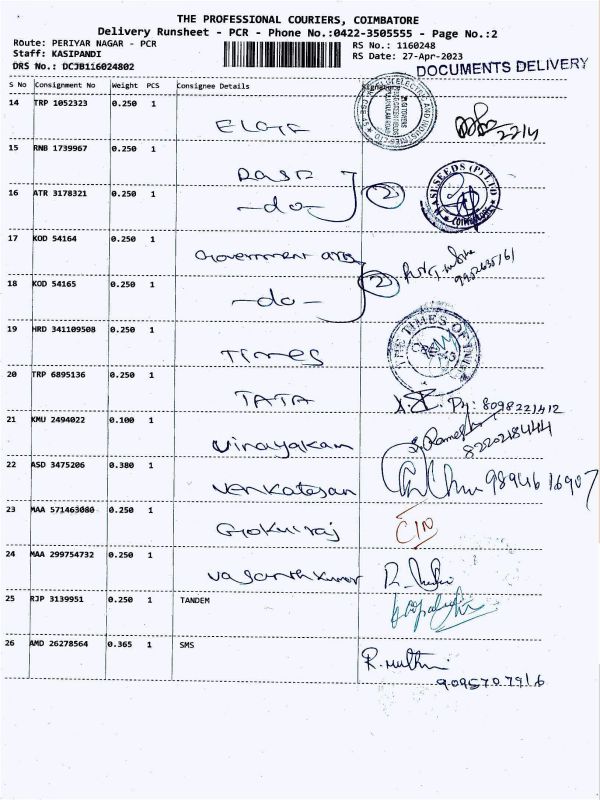 THE PROFESSIONAL COURIERS, COIMBATORE
Delivery Runsheet - PCR - Phone No.:0422-3505555 - Page No.:2
Route: PERIYAR NAGAR - PCR RS No.: 1160248
Staff: KASIPANDI RS Date: 27-Apr-2023
DRS No.: DCJB116024802 DOCUMENTS DELIVERY
S No Consignment No Weight PCS Consignee Details
14 TRP 1052323 0.250 1
15 RNB 1739967 0.250 1
16 ATR 3178321 0.250 1 -do- 2
17 KOD 54164 0.250 1 Government arts
18 KOD 54165 0.250 1 -do- 2
19 HRD 341109508 0.250 1 Times THE TIMES OF INDIA
20 TRP 6895136 0.250 1 TATA Ph: 8098221412
21 KMU 2494022 0.100 1 Vinayakam
22 ASD 3475206 0.380 1 Venkatesan 9894616907
23 MAA 571463080 0.250 1 Gokulraj
24 MAA 299754732 0.250 1 Vasanthkumar
25 RJP 3139951 0.250 1 TANDEM
26 AMD 26278564 0.365 1 SMS R. Muthu
9095707916